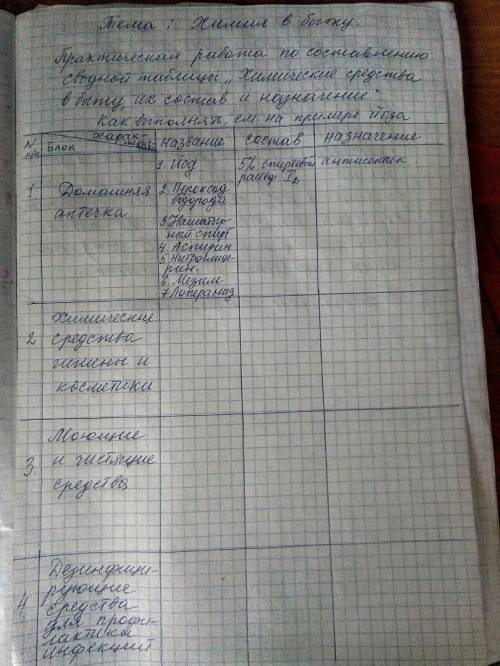 Тема: Химия в быту.
Практическая работа по составлению
сводной таблицы „Химические средства
в быту, их состав и назначение"
Как выполнять, см. на примере йода
N п/п
Блок
Характ-
название
состав
назначение
1
Домашняя
аптечка
1. Иод
2. Пероксид
водорода
3. Нашатыр-
ный спирт
4. Аспирин
5. Нитроглице-
рин.
6. Мезим
7. Лоперамид
5% спиртовый
раствор I2
антисептик
2
Химические
средства
гигиены и
косметики
3.
Моющие
и чистящие
средства
4.
Дезинфици-
рующие
средства
для профи-
лактики
инфекций